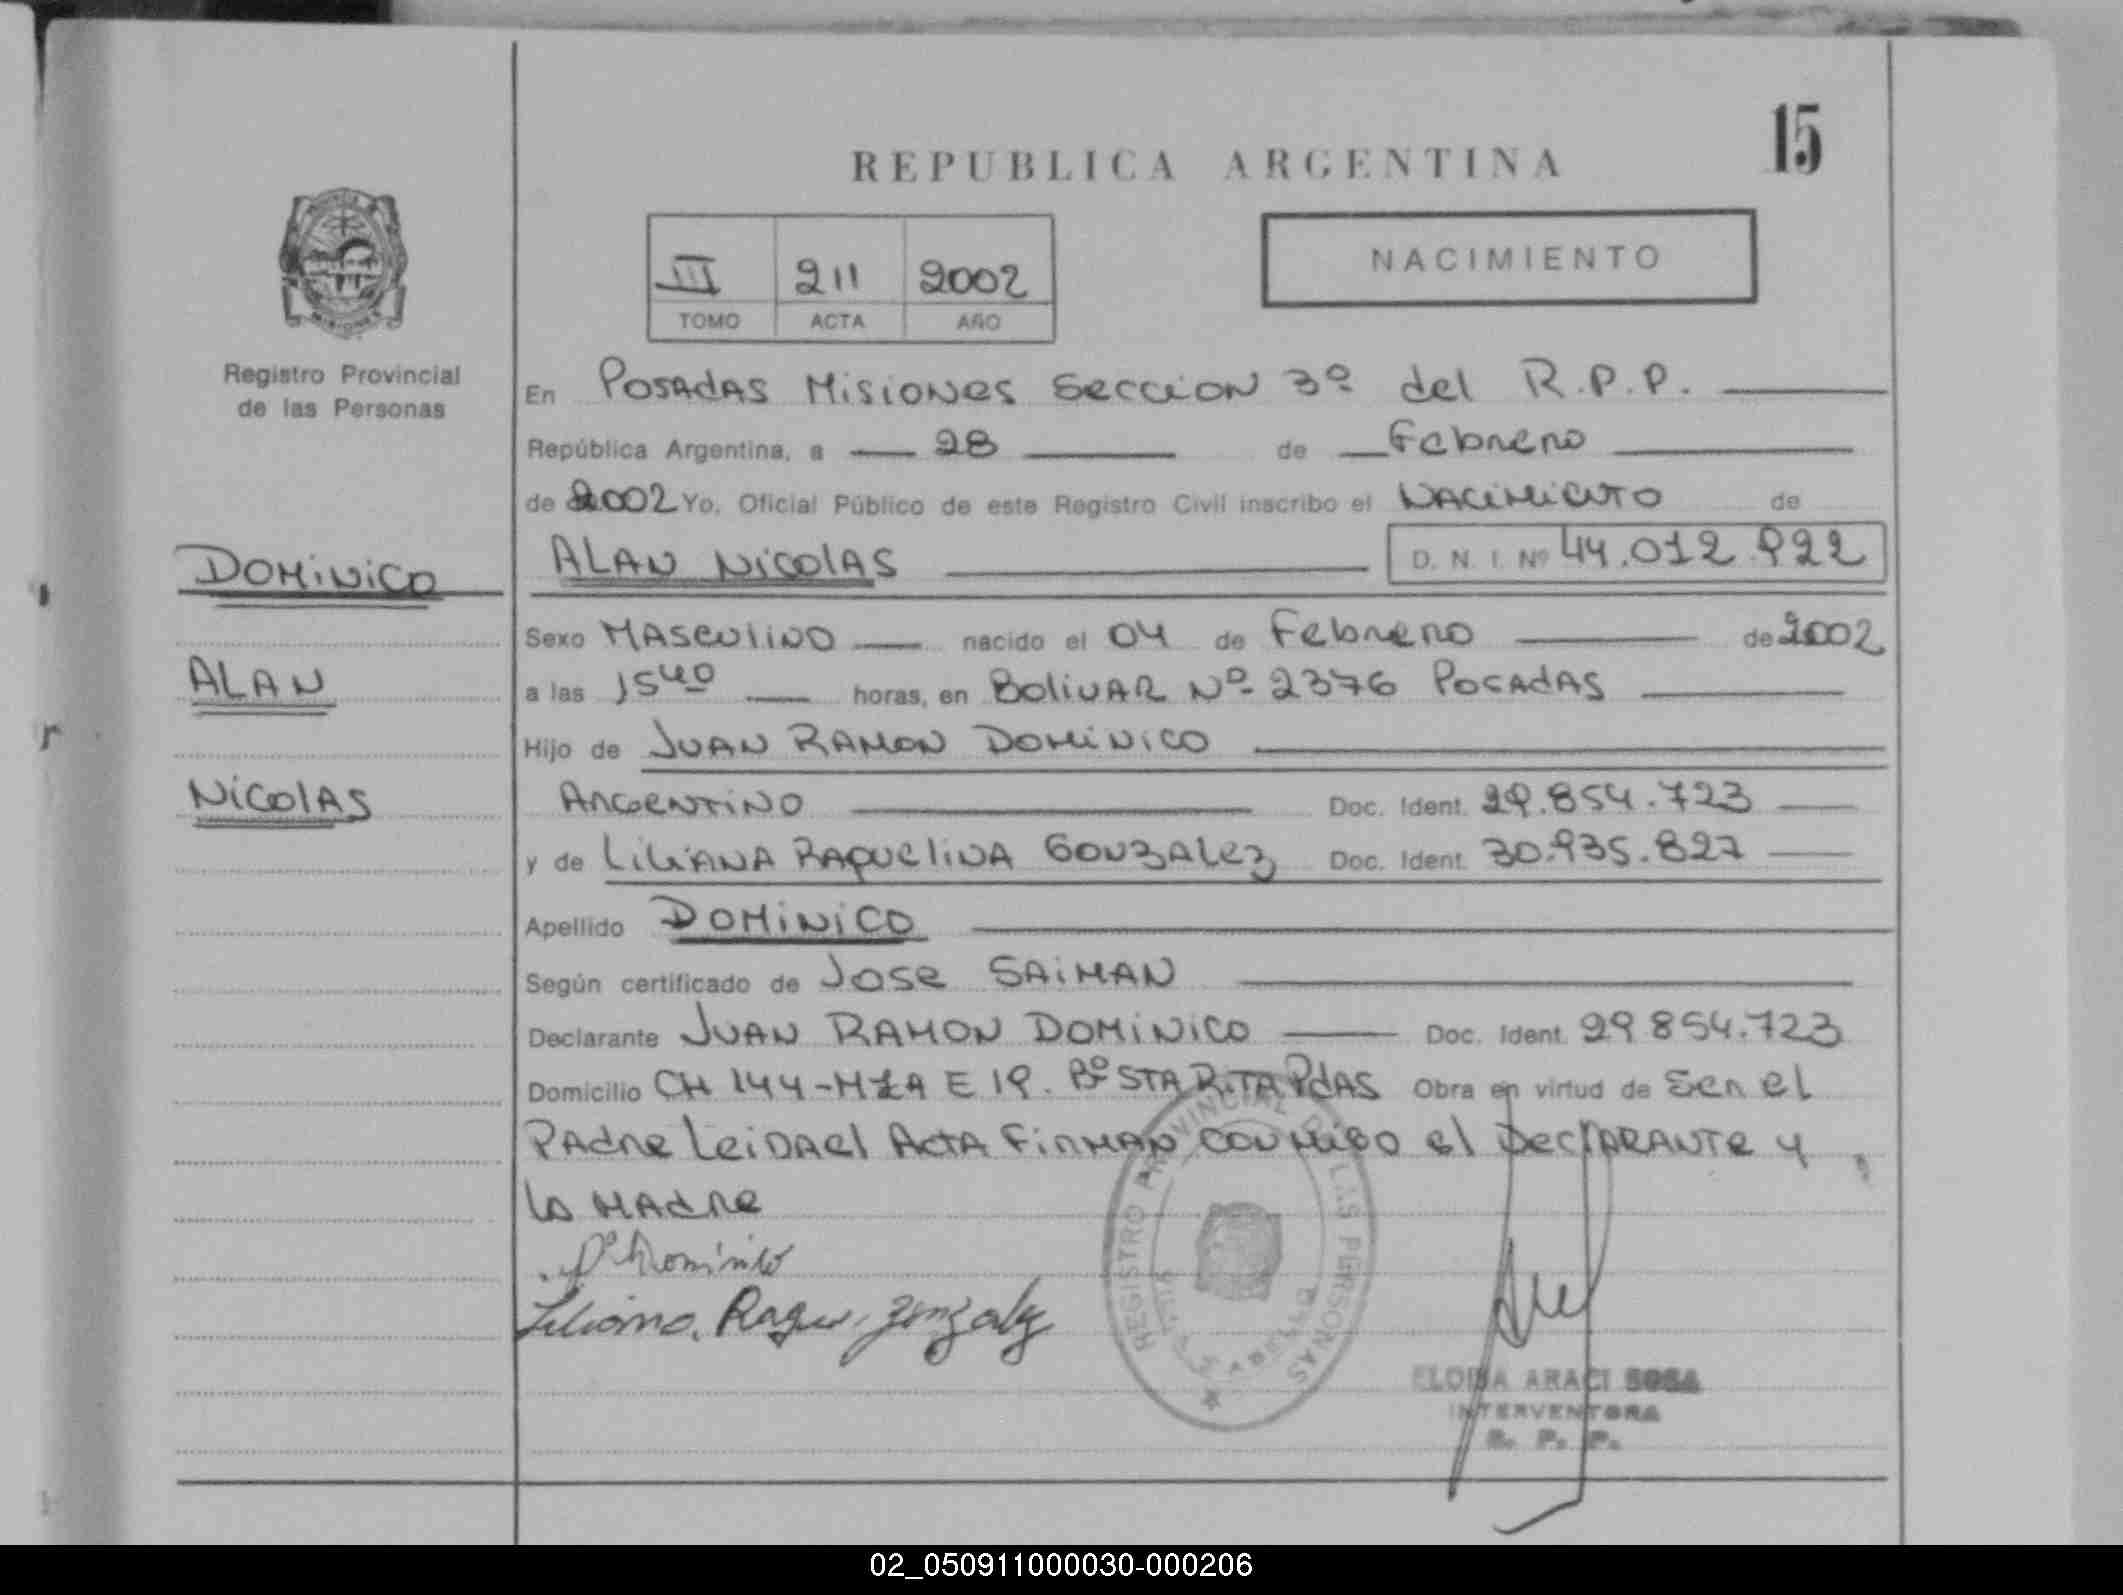 15
REPUBLICA ARGENTINA
III 211 2002
TOMO ACTA AÑO
NACIMIENTO
MISIONES
Registro Provincial
de las Personas
En Posadas Misiones Seccion 3º del R.P.P.
República Argentina, a 28 de Febrero
de 2002 Yo, Oficial Público de este Registro Civil inscribo el Nacimiento de
DOMINICO ALAN NICOLAS D. N. I. Nº 44.012.922
Sexo MASCULINO nacido el 04 de Febrero de 2002
ALAN a las 15 40 horas, en Bolivar Nº 2376 Posadas
Hijo de JUAN RAMON DOMINICO
NICOLAS Argentino Doc. Ident. 29.854.723
y de LILIANA RAQUELINA GONZALEZ Doc. Ident. 30.935.827
Apellido DOMINICO
Según certificado de Jose SAIMAN
Declarante JUAN RAMON DOMINICO Doc. Ident. 29854.723
Domicilio CH 144-MZA E 19. Bº STA RITA PdAS Obra en virtud de Ser el
Padre Leida el Acta Firman conmigo el Declarante y
la Madre
Dominico
Liliana Raqu. Gonzalez
REGISTRO PROVINCIAL DE LAS PERSONAS
ELOISA ARACI SOSA
INTERVENTORA
R. P. P.
02_050911000030-000206